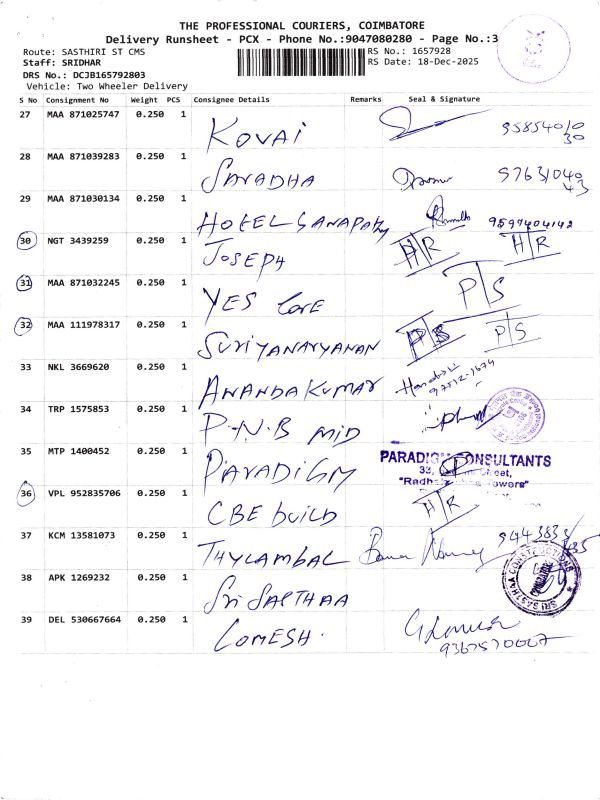 THE PROFESSIONAL COURIERS, COIMBATORE
Delivery Runsheet - PCX - Phone No.:9047080280 - Page No.:3
Route: SASTHIRI ST CMS
RS No.: 1657928
Staff: SRIDHAR
RS Date: 18-Dec-2025
DRS No.: DCJB165792803
Vehicle: Two Wheeler Delivery
S No Consignment No Weight PCS Consignee Details Remarks Seal & Signature
27 MAA 871025747 0.250 1 KOVAI 9585401030
28 MAA 871039283 0.250 1 SARADHA 9763104043
29 MAA 871030134 0.250 1 HOTEL GANAPAthy 9597404142
30 NGT 3439259 0.250 1 JOSEPH H/R H/R
31 MAA 871032245 0.250 1 YES Care P/S
32 MAA 111978317 0.250 1 SuriYANARYANAN P/S P/S
33 NKL 3669620 0.250 1 ANANDAKUMAR 97512-1674
34 TRP 1575853 0.250 1 P.N.B MID
35 MTP 1400452 0.250 1 PARADIGM PARADIGM CONSULTANTS
33, Street,
"Radha Towers"
36 VPL 952835706 0.250 1 CBE build H/R
37 KCM 13581073 0.250 1 THYLAMBAL 9443833
38 APK 1269232 0.250 1 Sri SASTHAA SRI SASTHAA CONSTRUCTIONS
39 DEL 530667664 0.250 1 LOMESH. 9367570007